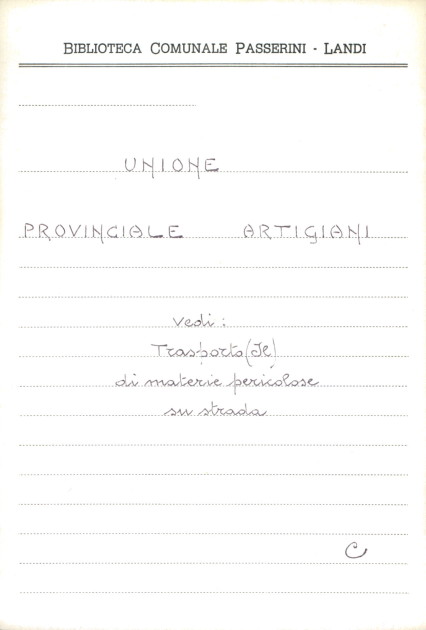 BIBLIOTECA COMUNALE PASSERINI - LANDI
UNIONE
PROVINCIALE ARTIGIANI
vedi:
Trasporto (Il)
di materie pericolose
su strada
C